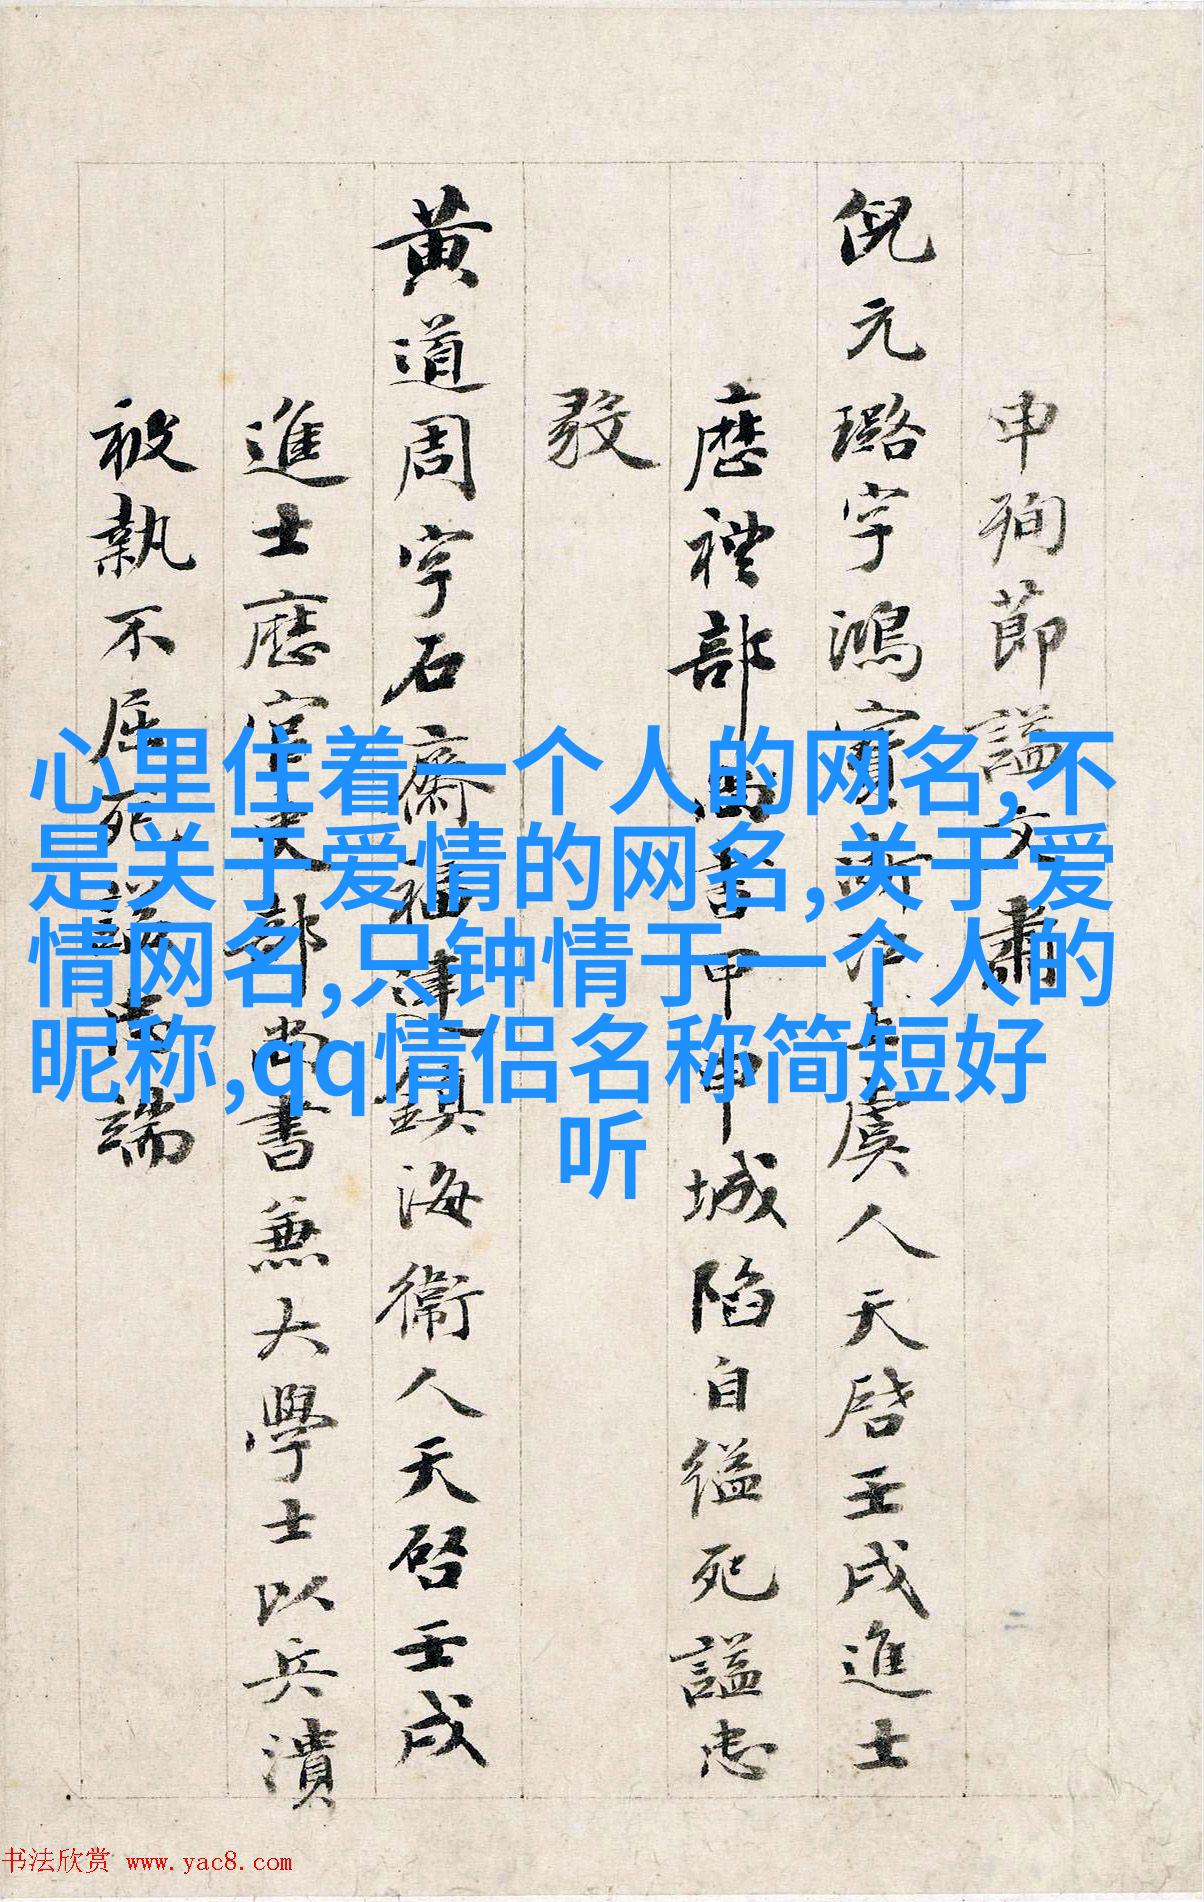 申殉節謚文肅
倪元璐字鴻寶浙江上虞人天啓壬戌進士
歷禮部尚書甲申城陷自縊死謚忠
毅
黄道周字石齋福建鎮海衛人天啓壬戌
進士歷官吏部尚書兼大學士以兵潰
被執不屈死謚忠端
心里住着一个人的网名,不
是关于爱情的网名,关于爱
情网名,只钟情于一个人的
昵称,qq情侣名称简短好
听
书法欣赏 www.yac8.com